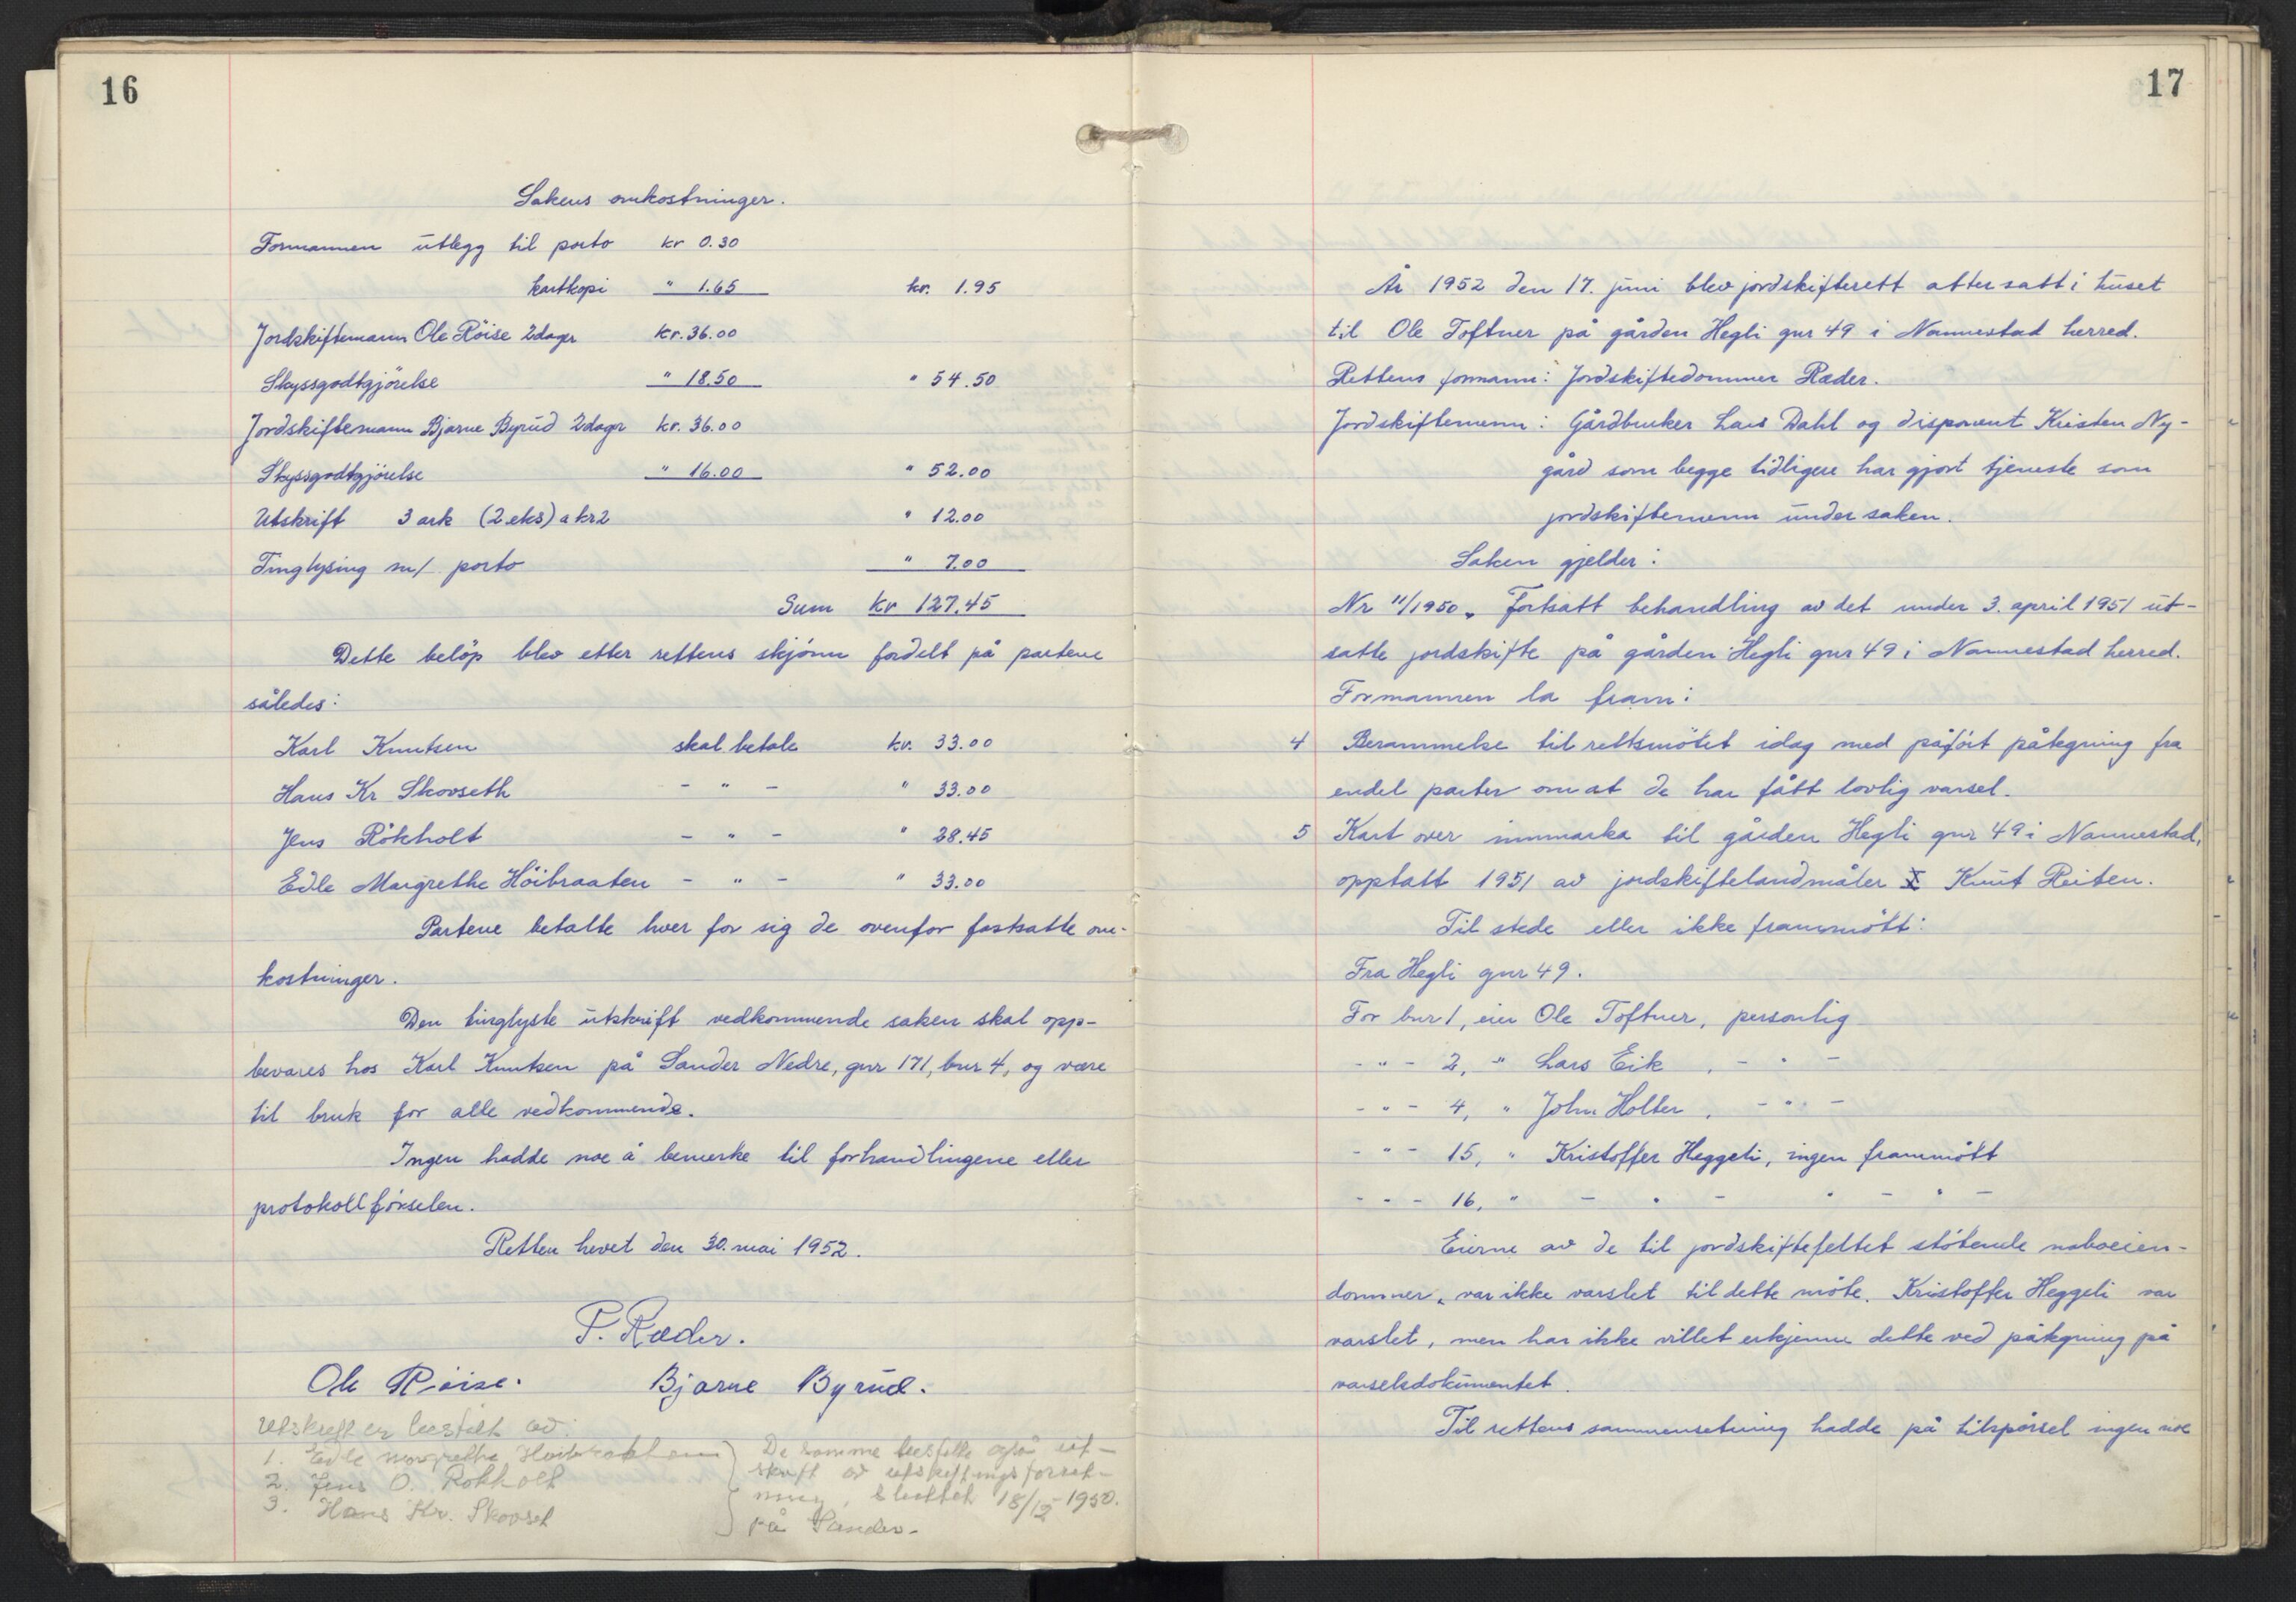 16
Sakens omkostninger.
Formannen utlegg til porto kr 0.30
kartkopi " 1.65 kr. 1.95
Jordskiftemann Ole Röise 2 dager kr. 36.00
Skyssgodtgjörelse " 18.50 " 54.50
Jordskiftemann Bjarne Byrud 2 dager kr. 36.00
Skyssgodtgjörelse " 16.00 " 52.00
Utskrift 3 ark (2 eks) a kr 2 " 12.00
Tinglysing m/ porto " 7.00
Sum kr 127.45
Dette belöp blev etter rettens skjönn fordelt på partene
således:
Karl Knutsen skal betale kr. 33.00
Hans Kr Skovseth - " - " 33.00
Jens Rökholt - " - " 28.45
Edle Margrethe Höibraaten - " - " 33.00
Partene betalte hver for sig de ovenfor fastsatte om-
kostninger.
Den tinglyste utskrift vedkommende saken skal opp-
bevares hos Karl Knutsen på Sander Nedre, gnr 171, bnr 4, og være
til bruk for alle vedkommende.
Ingen hadde noe å bemerke til forhandlingene eller
protokollförselen.
Retten hevet den 30. mai 1952.
P. Ræder.
Ole Röise. Bjarne Byrud.
Utskrift er bestilt av:
1. Edle Margrethe Hoibraaten
2. Jens O. Rökholt
3. Hans Kr. Skovset
De samme bestilte også ut-
skrift av utskiftningsforret-
ning, sluttet 18/12 1950.
på Sander.
17
År 1952 den 17. juni blev jordskifterett atter satt i huset
til Ole Toftner på gården Hegli gnr 49 i Nannestad herred.
Rettens formann: Jordskiftedommer Ræder.
Jordskiftemenn: Gårdbruker Lars Dahl og disponent Kristen Ny-
gård som begge tidligere har gjort tjeneste som
jordskiftemenn under saken.
Saken gjelder:
Nr 11/1950. Fortsatt behandling av det under 3. april 1951 ut-
satte jordskifte på gården Hegli gnr 49 i Nannestad herred.
Formannen la fram:
4 Berammelse til rettsmötet idag med påfört påtegning fra
endel parter om at de har fått lovlig varsel.
5 Kart over innmarka til gården Hegli gnr 49 i Nannestad,
opptatt 1951 av jordskiftelandmåler Knut Reiten.
Til stede eller ikke frammött:
Fra Hegli gnr 49.
For bnr 1, eier Ole Toftner, personlig
- " - 2, " Lars Eik, - " -
- " - 4, " John Holter, - " -
- " - 15, " Kristoffer Heggeli, ingen frammött
- " - 16, " - " - " - " -
Eierne av de til jordskiftefeltet stötende naboeien-
dommer, var ikke varslet til dette möte. Kristoffer Heggeli var
varslet, men har ikke villet erkjenne dette ved påtegning på
varselsdokumentet.
Til rettens sammensetning hadde på tilspörsel ingen noe